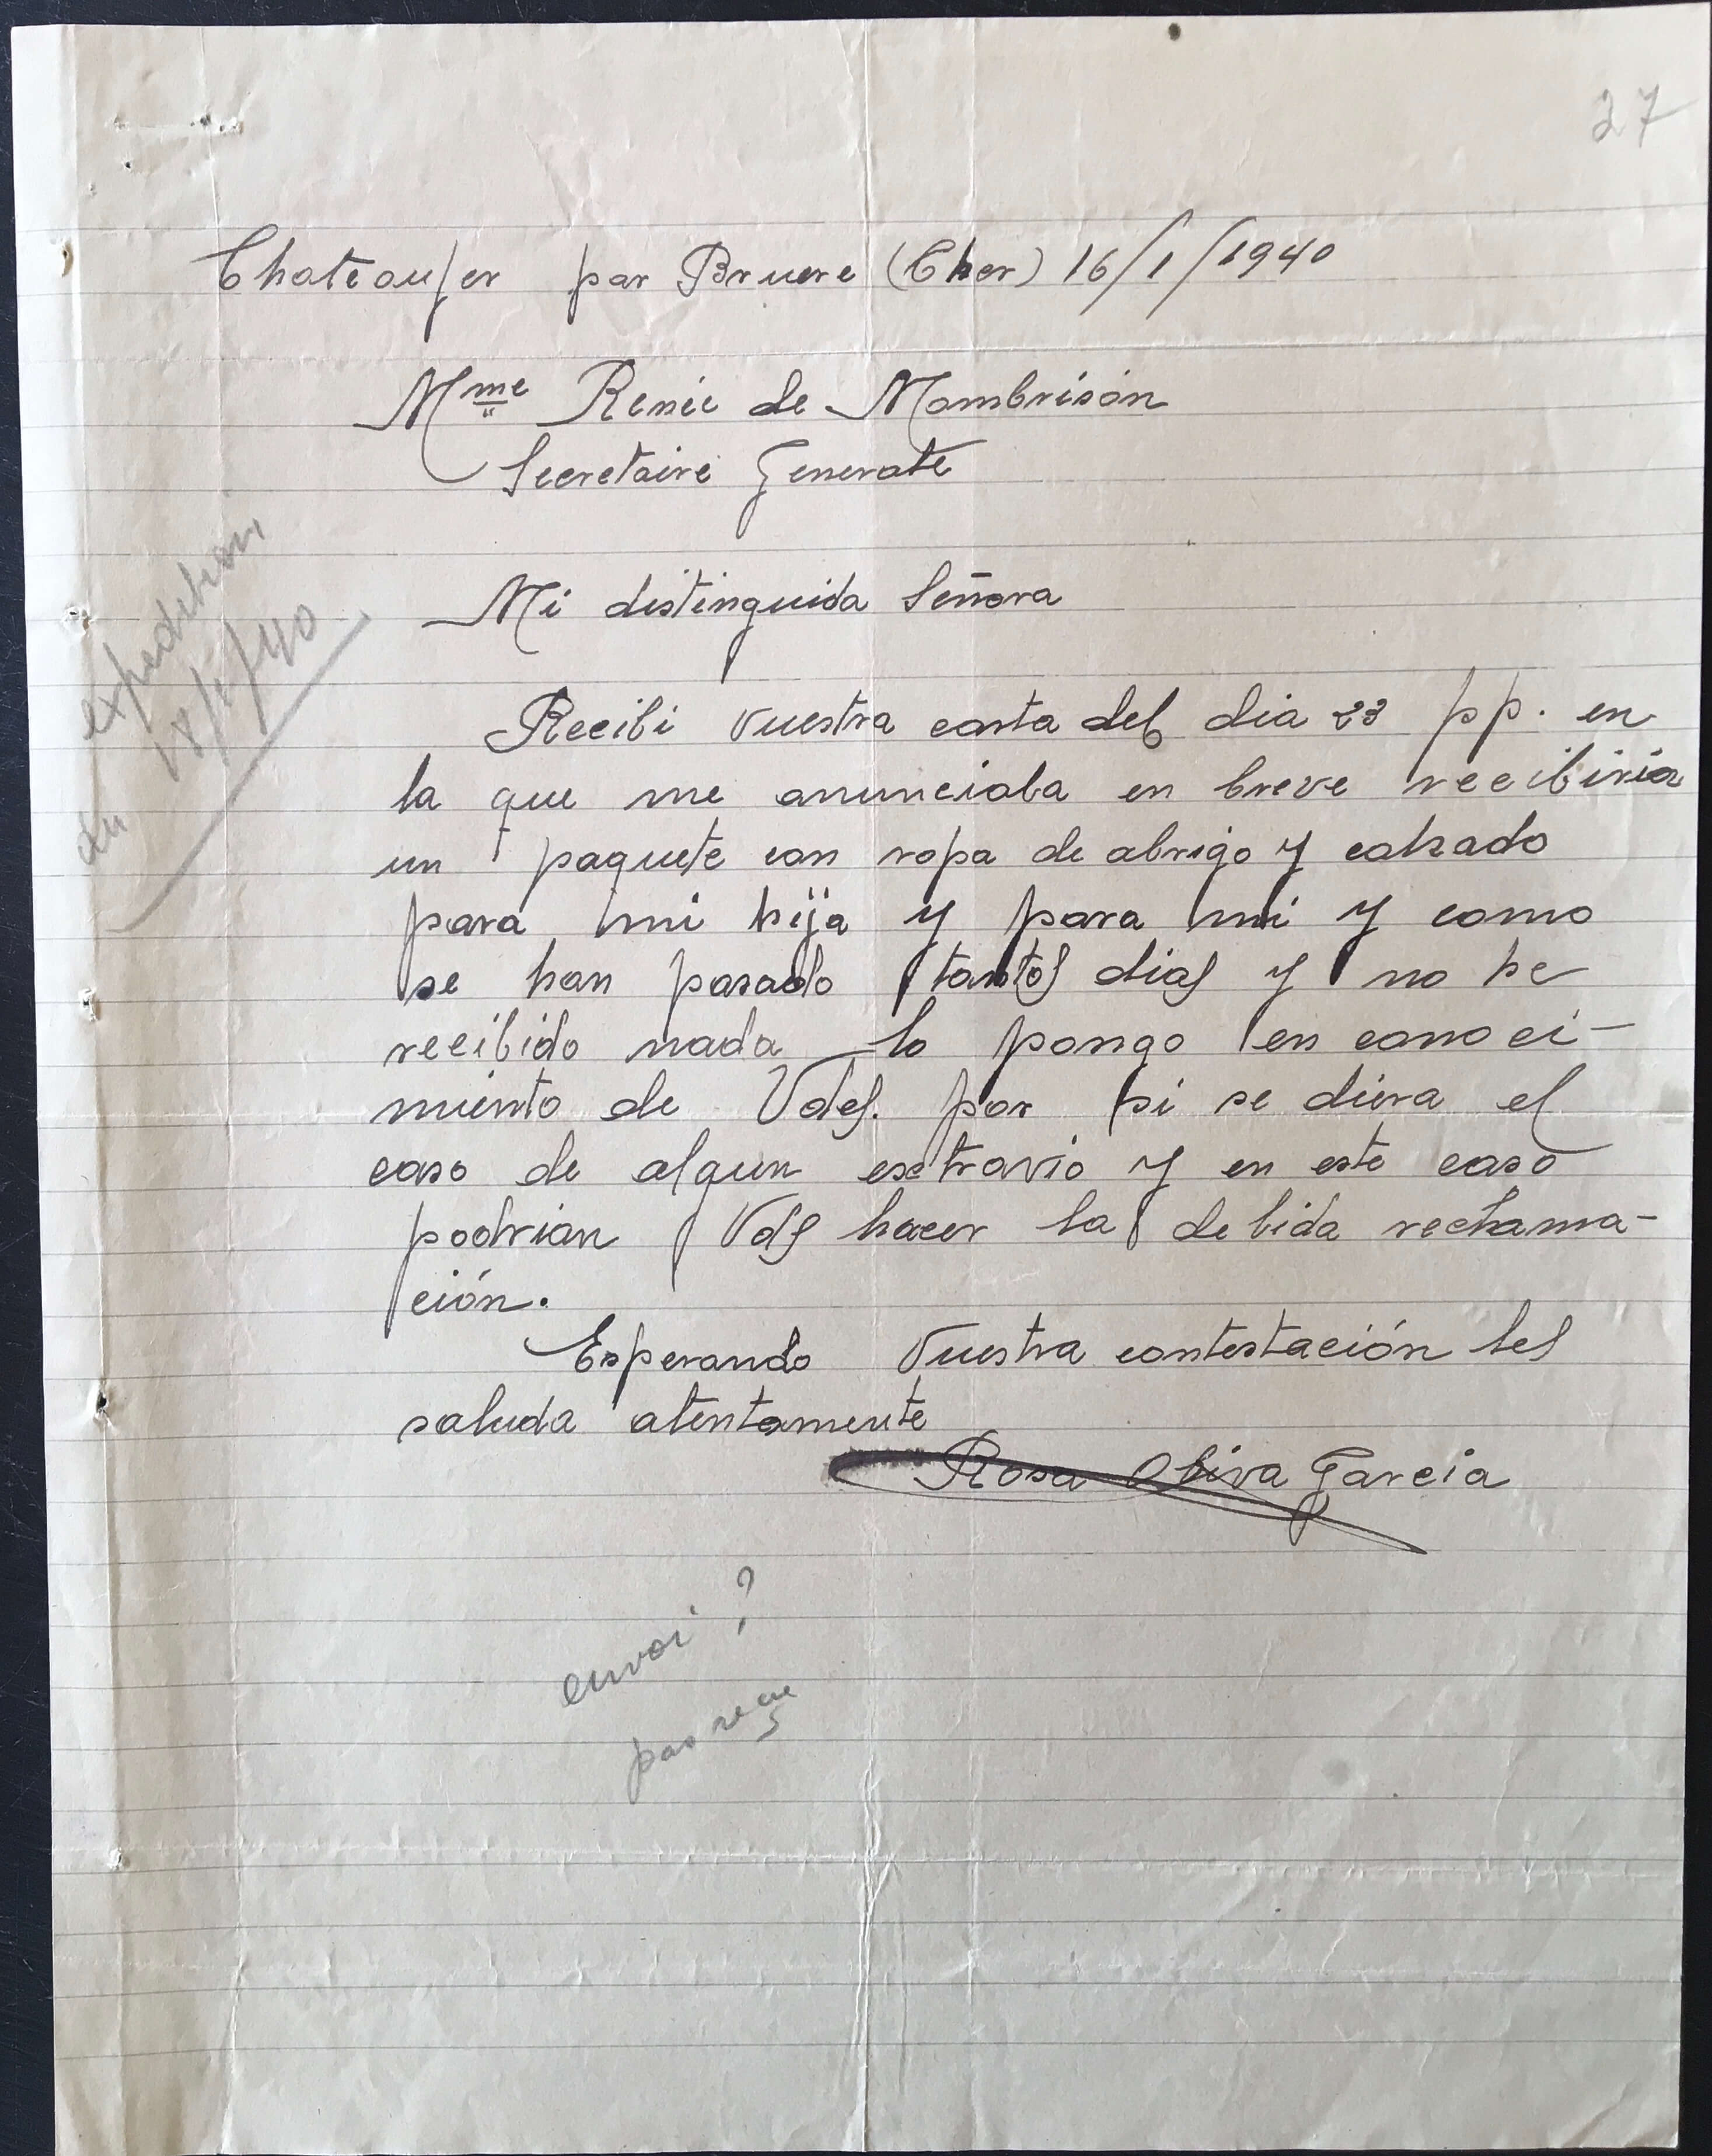 27
Chateaufer par Bruere (Cher) 16/1/1940
Mme Renée de Mombrisón
Secretaire Generale
Mi distinguida Señora
expedition
du 18/1/40
Recibi vuestra carta del dia 23 pp. en
la que me anunciaba en breve recibiria
un paquete con ropa de abrigo y calzado
para mi hija y para mi y como
se han pasado tantos dias y no he
recibido nada lo pongo en conoci-
miento de Vdes. por si se diera el
caso de algun extravio y en este caso
podrian Vds hacer la debida reclama-
ción.
Esperando vuestra contestación les
saluda atentamente
Rosa Oliva Garcia
envoi ?
pas reçu